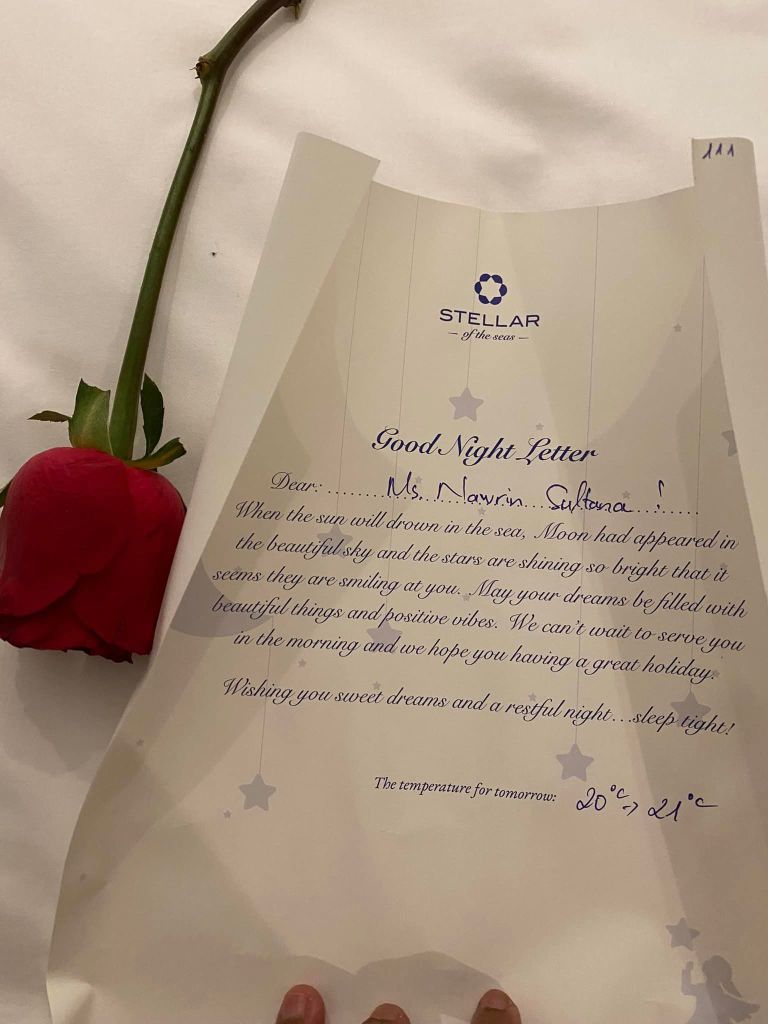 111
STELLAR
of the seas
Good Night Letter
Dear: ........Ms. Nawrin Sultana !.....
When the sun will drown in the sea, Moon had appeared in
the beautiful sky and the stars are shining so bright that it
seems they are smiling at you. May your dreams be filled with
beautiful things and positive vibes. We can't wait to serve you
in the morning and we hope you having a great holiday.
Wishing you sweet dreams and a restful night...sleep tight!
The temperature for tomorrow: 20°C → 21°C